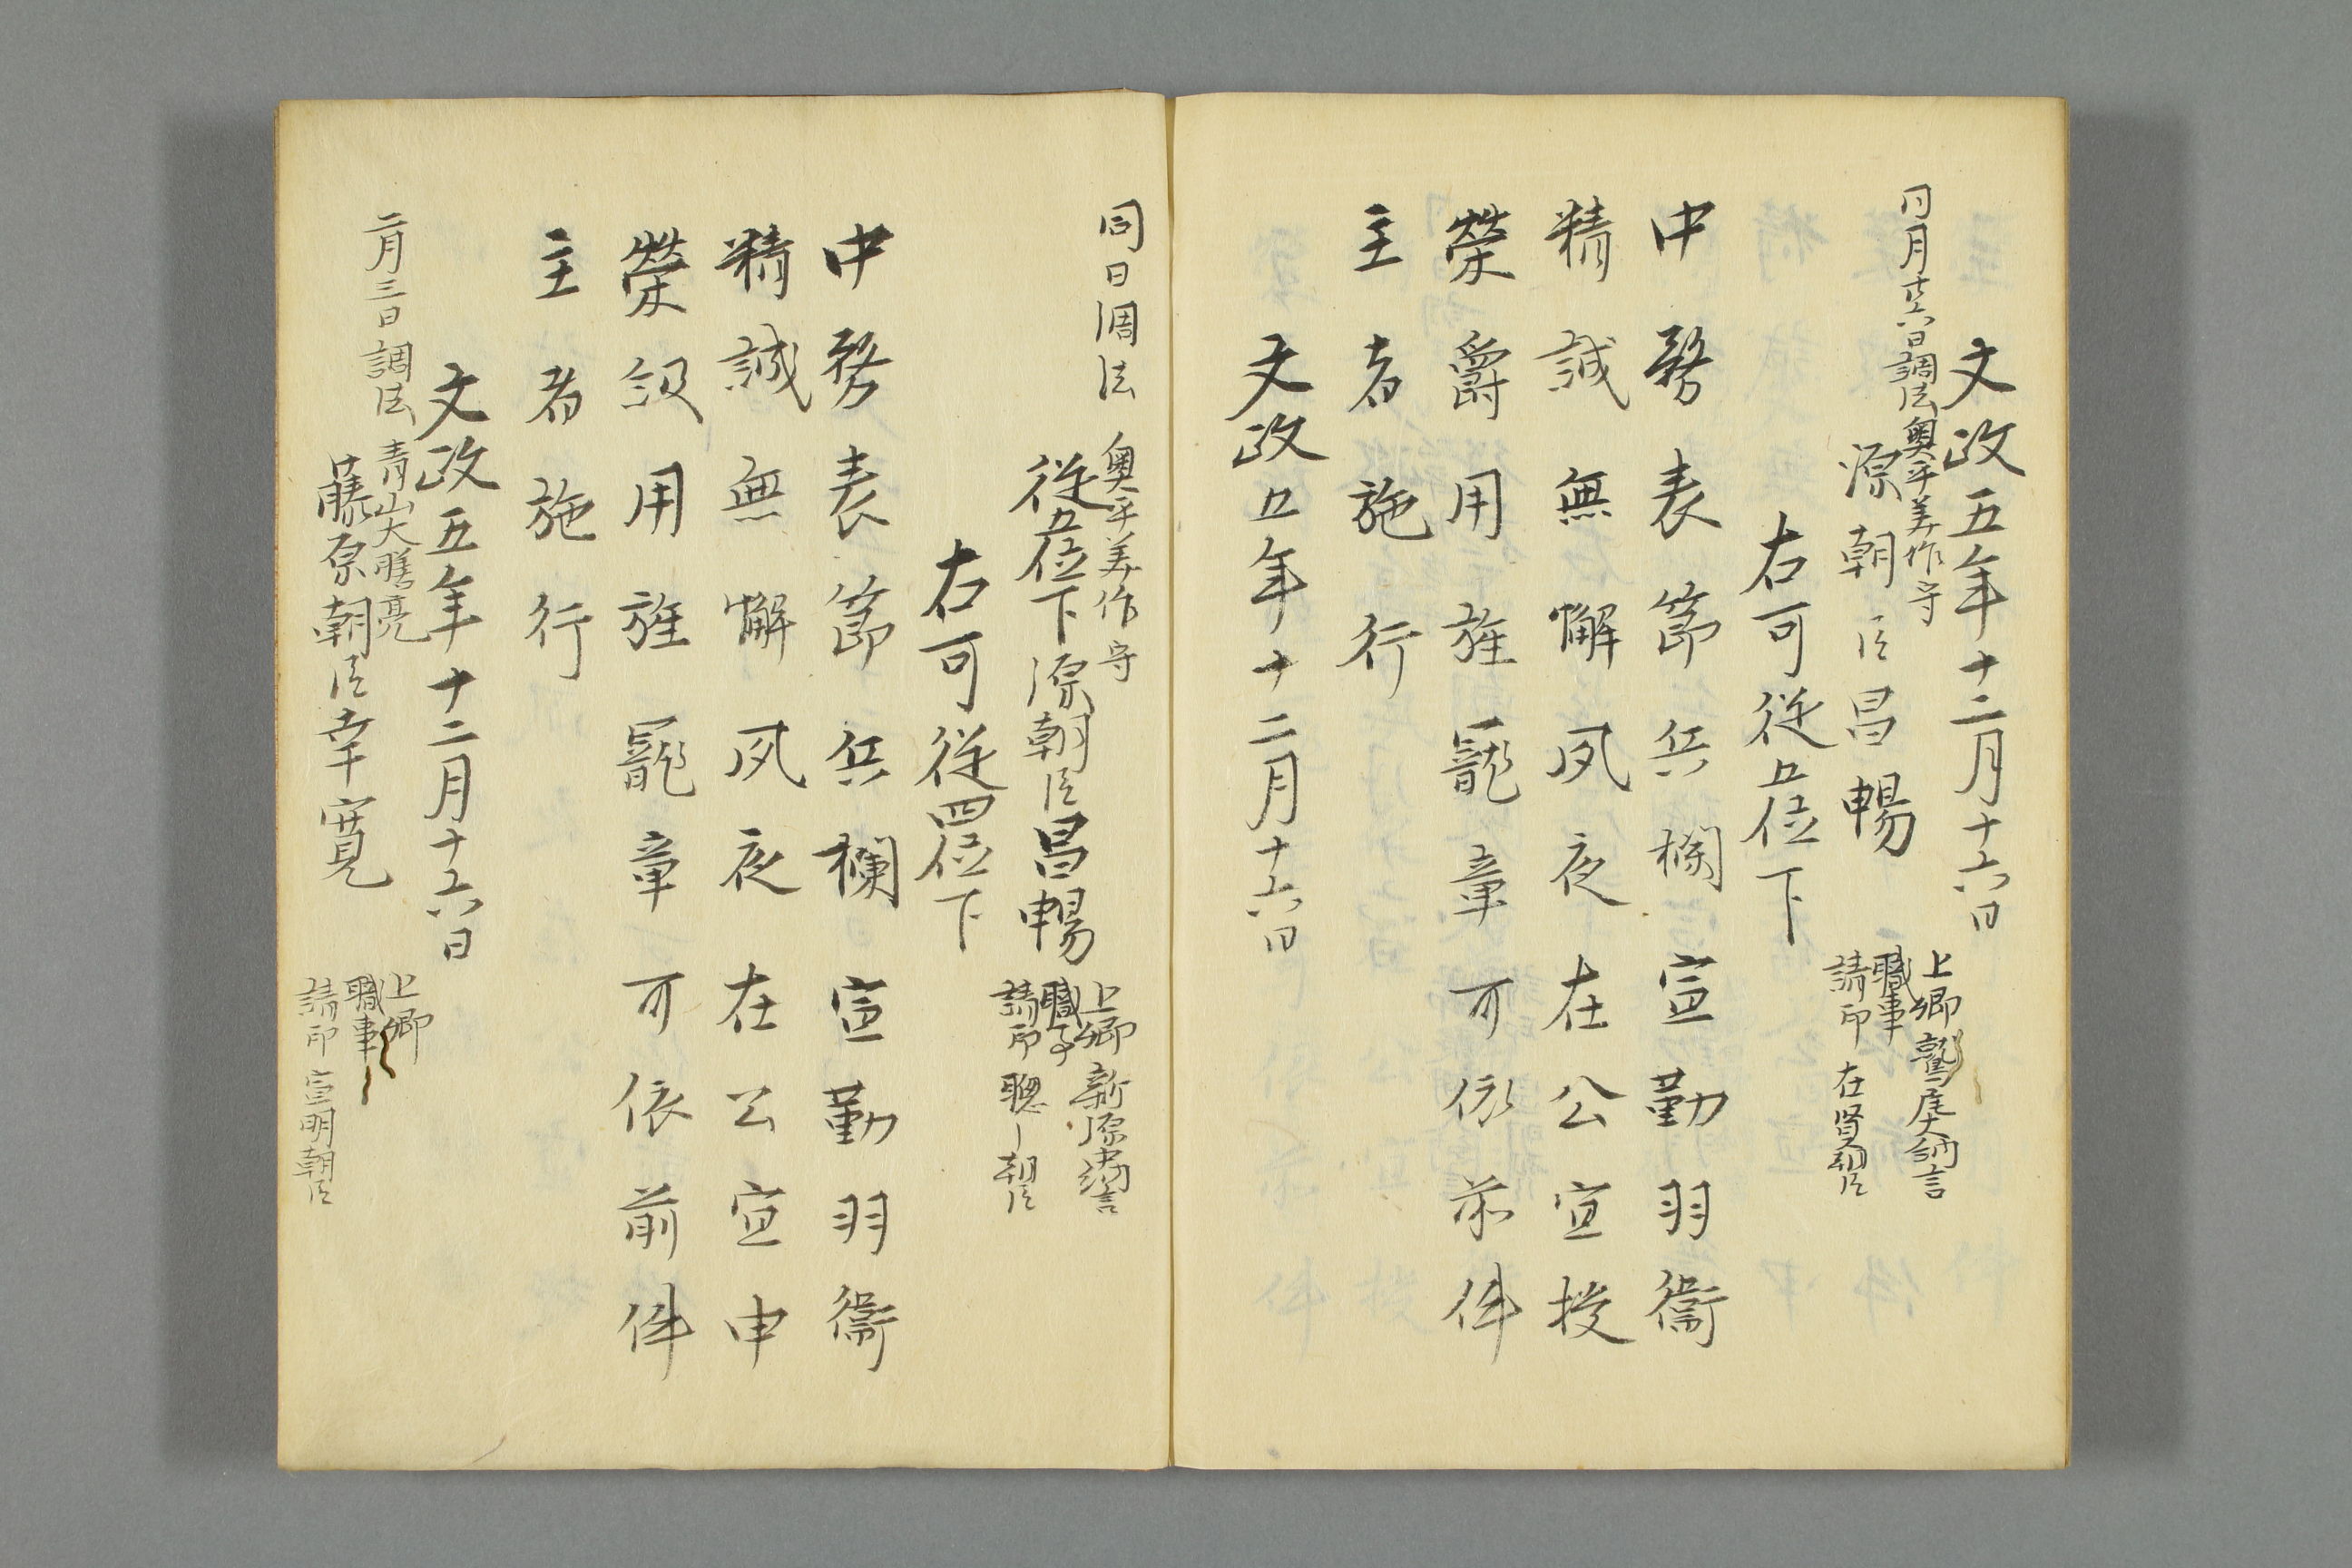 文政五年十二月十六日
同月廿六日調法奥平美作守
源朝臣昌暢
上卿鷲尾大納言
職事
請印在賢朝臣
右可従五位下
中務表節兵欄宣勤羽衛
精誠無懈夙夜在公宜授
榮爵用旌寵章可依前件
主者施行
文政五年十二月十六日
同日調法奥平美作守
従五位下源朝臣昌暢
上卿新源中納言
職事
請印聰〻朝臣
右可従四位下
中務表節兵欄宣勤羽衛
精誠無懈夙夜在公宜申
榮級用旌寵章可依前件
主者施行
文政五年十二月十六日
二月三日調法青山大膳亮
藤原朝臣幸寛
上卿
職事
請印宣明朝臣